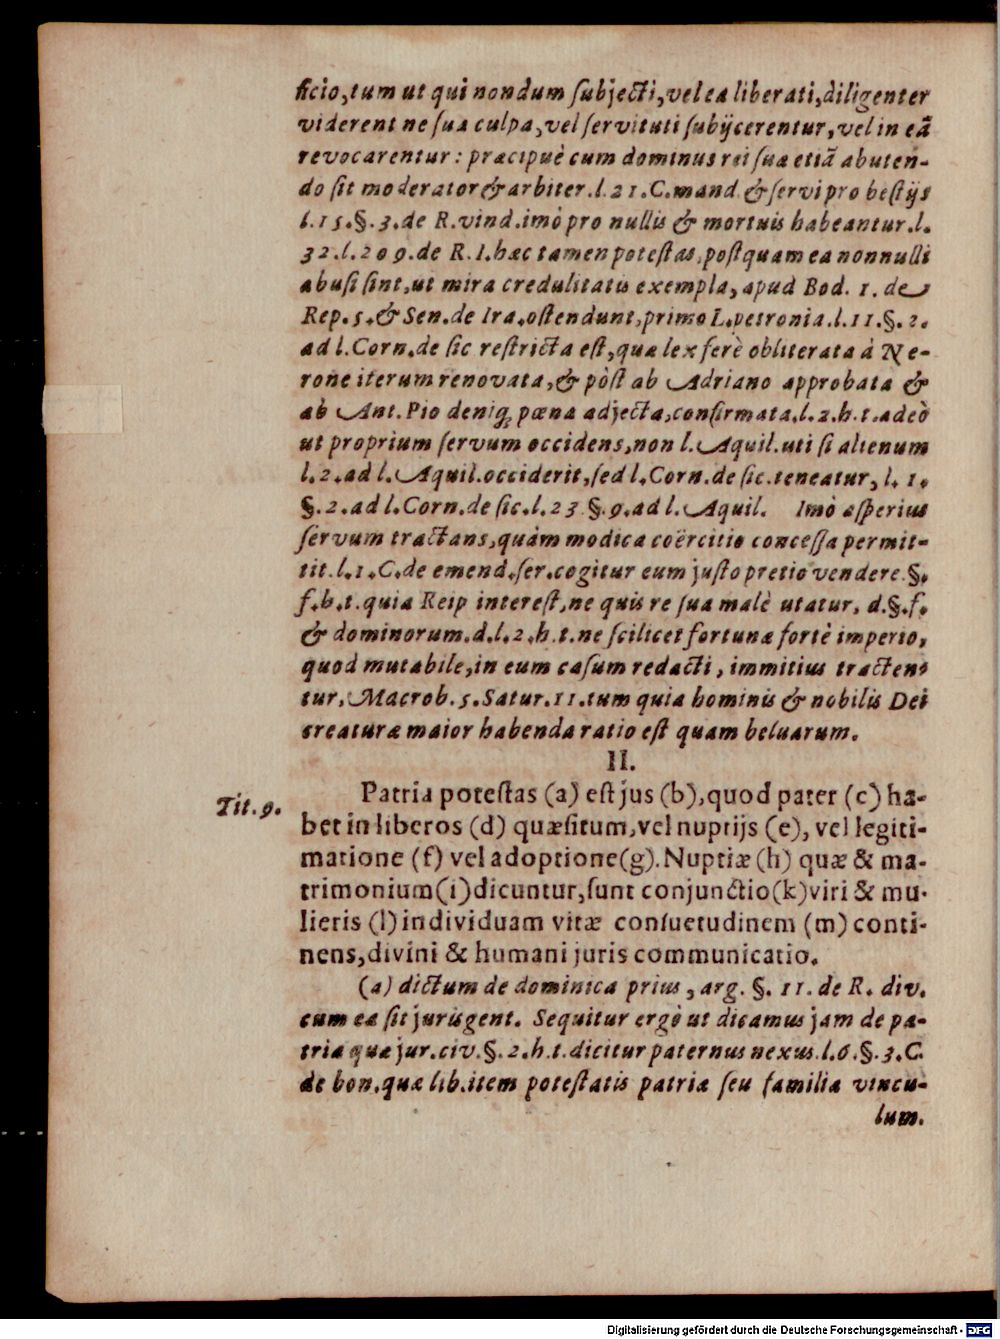 ficio,tum ut qui nondum ſubjecti,vel ea liberati,diligenter
viderent ne ſua culpa,vel ſervituti ſubijcerentur,vel in eã
revocarentur: præcipuè cum dominus rei ſuæ etiã abuten-
do ſit moderator & arbiter.l.21.C.mand.& ſervi pro beſtijs
l.15.§.3.de R.vind.imò pro nullis & mortuis habeantur.l.
32.l.209.de R.I.hæc tamen poteſtas,poſtquam ea nonnulli
abuſi ſint,ut mira credulitatis exempla,apud Bod. 1. de
Rep.5.& Sen.de Ira.oſtendunt,primo L.petronia.l.11.§.2.
ad l.Corn.de ſic reſtricta eſt,quæ lex ferè obliterata à Ne-
rone iterum renovata,& pòſt ab Adriano approbata &
ab Ant.Pio deniq; pœna adjecta,confirmata.l.2.h.t.adeò
ut proprium ſervum occidens,non l.Aquil.uti ſi alienum
l.2.ad l.Aquil.occiderit,ſed l.Corn.de ſic.teneatur, l. 1.
§.2.ad l.Corn.de ſic.l.23.§.9.ad l.Aquil. Imò aſperius
ſervum tractans,quàm modica coërcitio conceſſa permit-
tit.l.1.C.de emend.ſer.cogitur eum juſto pretio vendere.§.
f.h.t.quia Reip intereſt,ne quis re ſua malè utatur, d.§.f.
& dominorum.d.l.2.h.t.ne ſcilicet fortunæ fortè imperio,
quod mutabile,in eum caſum redacti, immitius tracten-
tur,Macrob.5.Satur.11.tum quia hominis & nobilis Dei
creaturæ maior habenda ratio eſt quam beluarum.
II.
Tit.9.
Patria poteſtas (a) eſt jus (b),quod pater (c) ha-
bet in liberos (d) quæſitum,vel nuptijs (e), vel legiti-
matione (f) vel adoptione(g).Nuptiæ (h) quæ & ma-
trimonium(i)dicuntur,ſunt conjunctio(k)viri & mu-
lieris (l)individuam vitæ conſuetudinem (m) conti-
nens,divini & humani juris communicatio.
(a) dictum de dominica prius, arg. §. 11. de R. div.
cum ea ſit juris gent. Sequitur ergò ut dicamus jam de pa-
tria quæ jur.civ.§.2.h.t.dicitur paternus nexus.l.6.§.3.C.
de bon.quæ lib.item poteſtatis patriæ ſeu familiæ vincu-
lum.
Digitalisierung gefördert durch die Deutsche Forschungsgemeinschaft - DFG